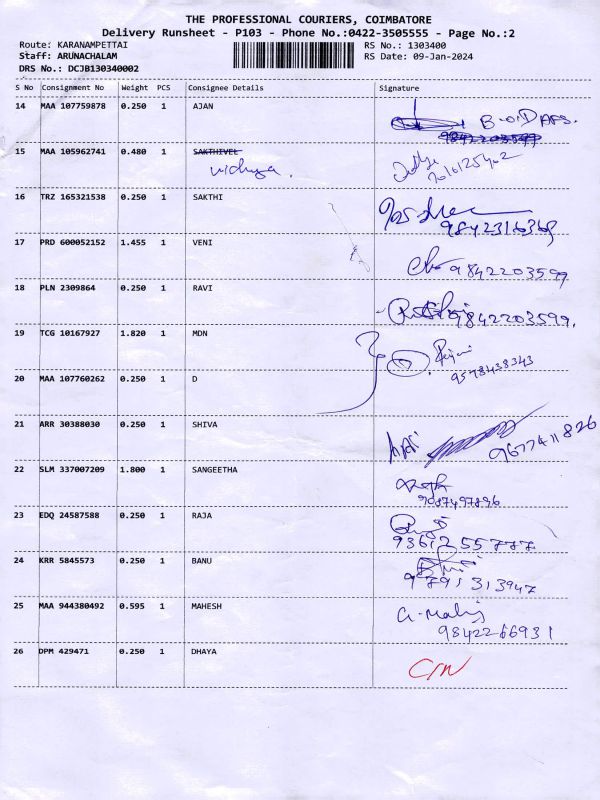 THE PROFESSIONAL COURIERS, COIMBATORE
Delivery Runsheet - P103 - Phone No.:0422-3505555 - Page No.:2
Route: KARANAMPETTAI RS No.: 1303400
Staff: ARUNACHALAM RS Date: 09-Jan-2024
DRS No.: DCJB130340002
S No Consignment No Weight PCS Consignee Details Signature
14 MAA 107759878 0.250 1 AJAN B.O.D AFS.
9842203599
15 MAA 105962741 0.480 1 SAKTHIVEL
vidhya.
16 TRZ 165321538 0.250 1 SAKTHI
9842316368
17 PRD 600052152 1.455 1 VENI
9842203599
18 PLN 2309864 0.250 1 RAVI
9842203599.
19 TCG 10167927 1.820 1 MDN
9578438343
20 MAA 107760262 0.250 1 D
21 ARR 30388030 0.250 1 SHIVA
9677411826
22 SLM 337007209 1.800 1 SANGEETHA
9087497896
23 EDQ 24587588 0.250 1 RAJA
9361255777
24 KRR 5845573 0.250 1 BANU
97891313947
25 MAA 944380492 0.595 1 MAHESH
9842266931
26 DPM 429471 0.250 1 DHAYA C/N